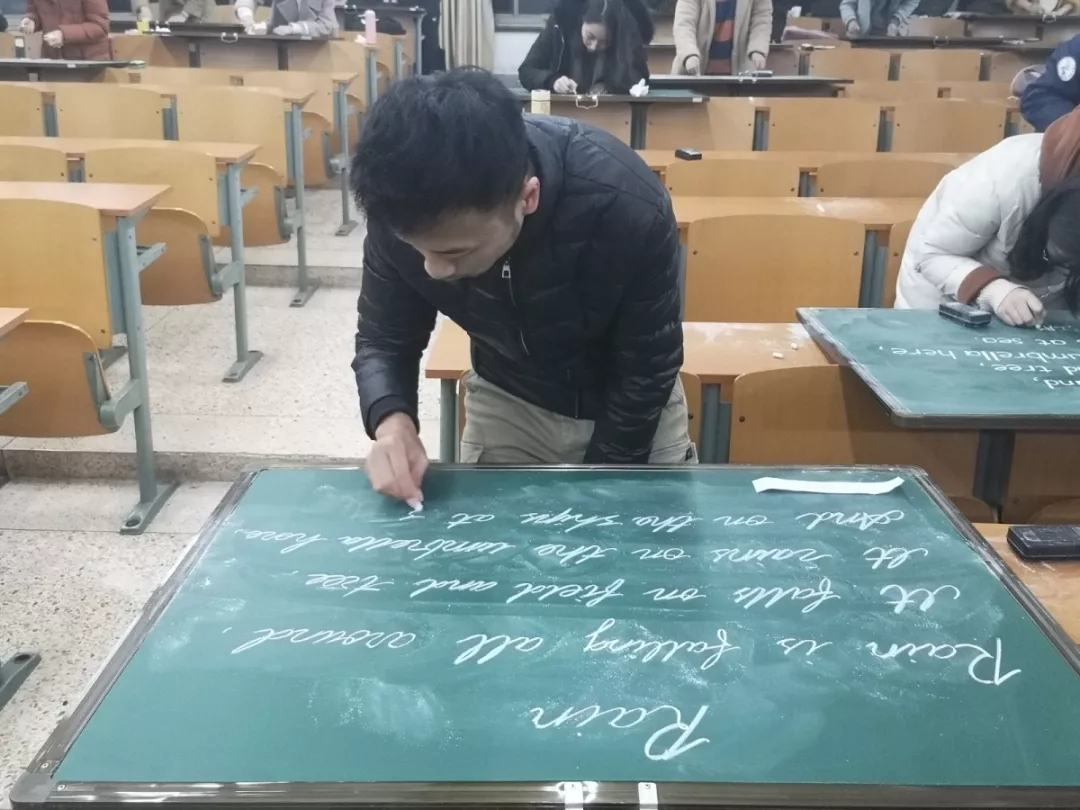 Rain
Rain is falling all around,
It falls on field and tree,
It rains on the umbrella here,
And on the ships at
tree,
umbrella here,
at sea.